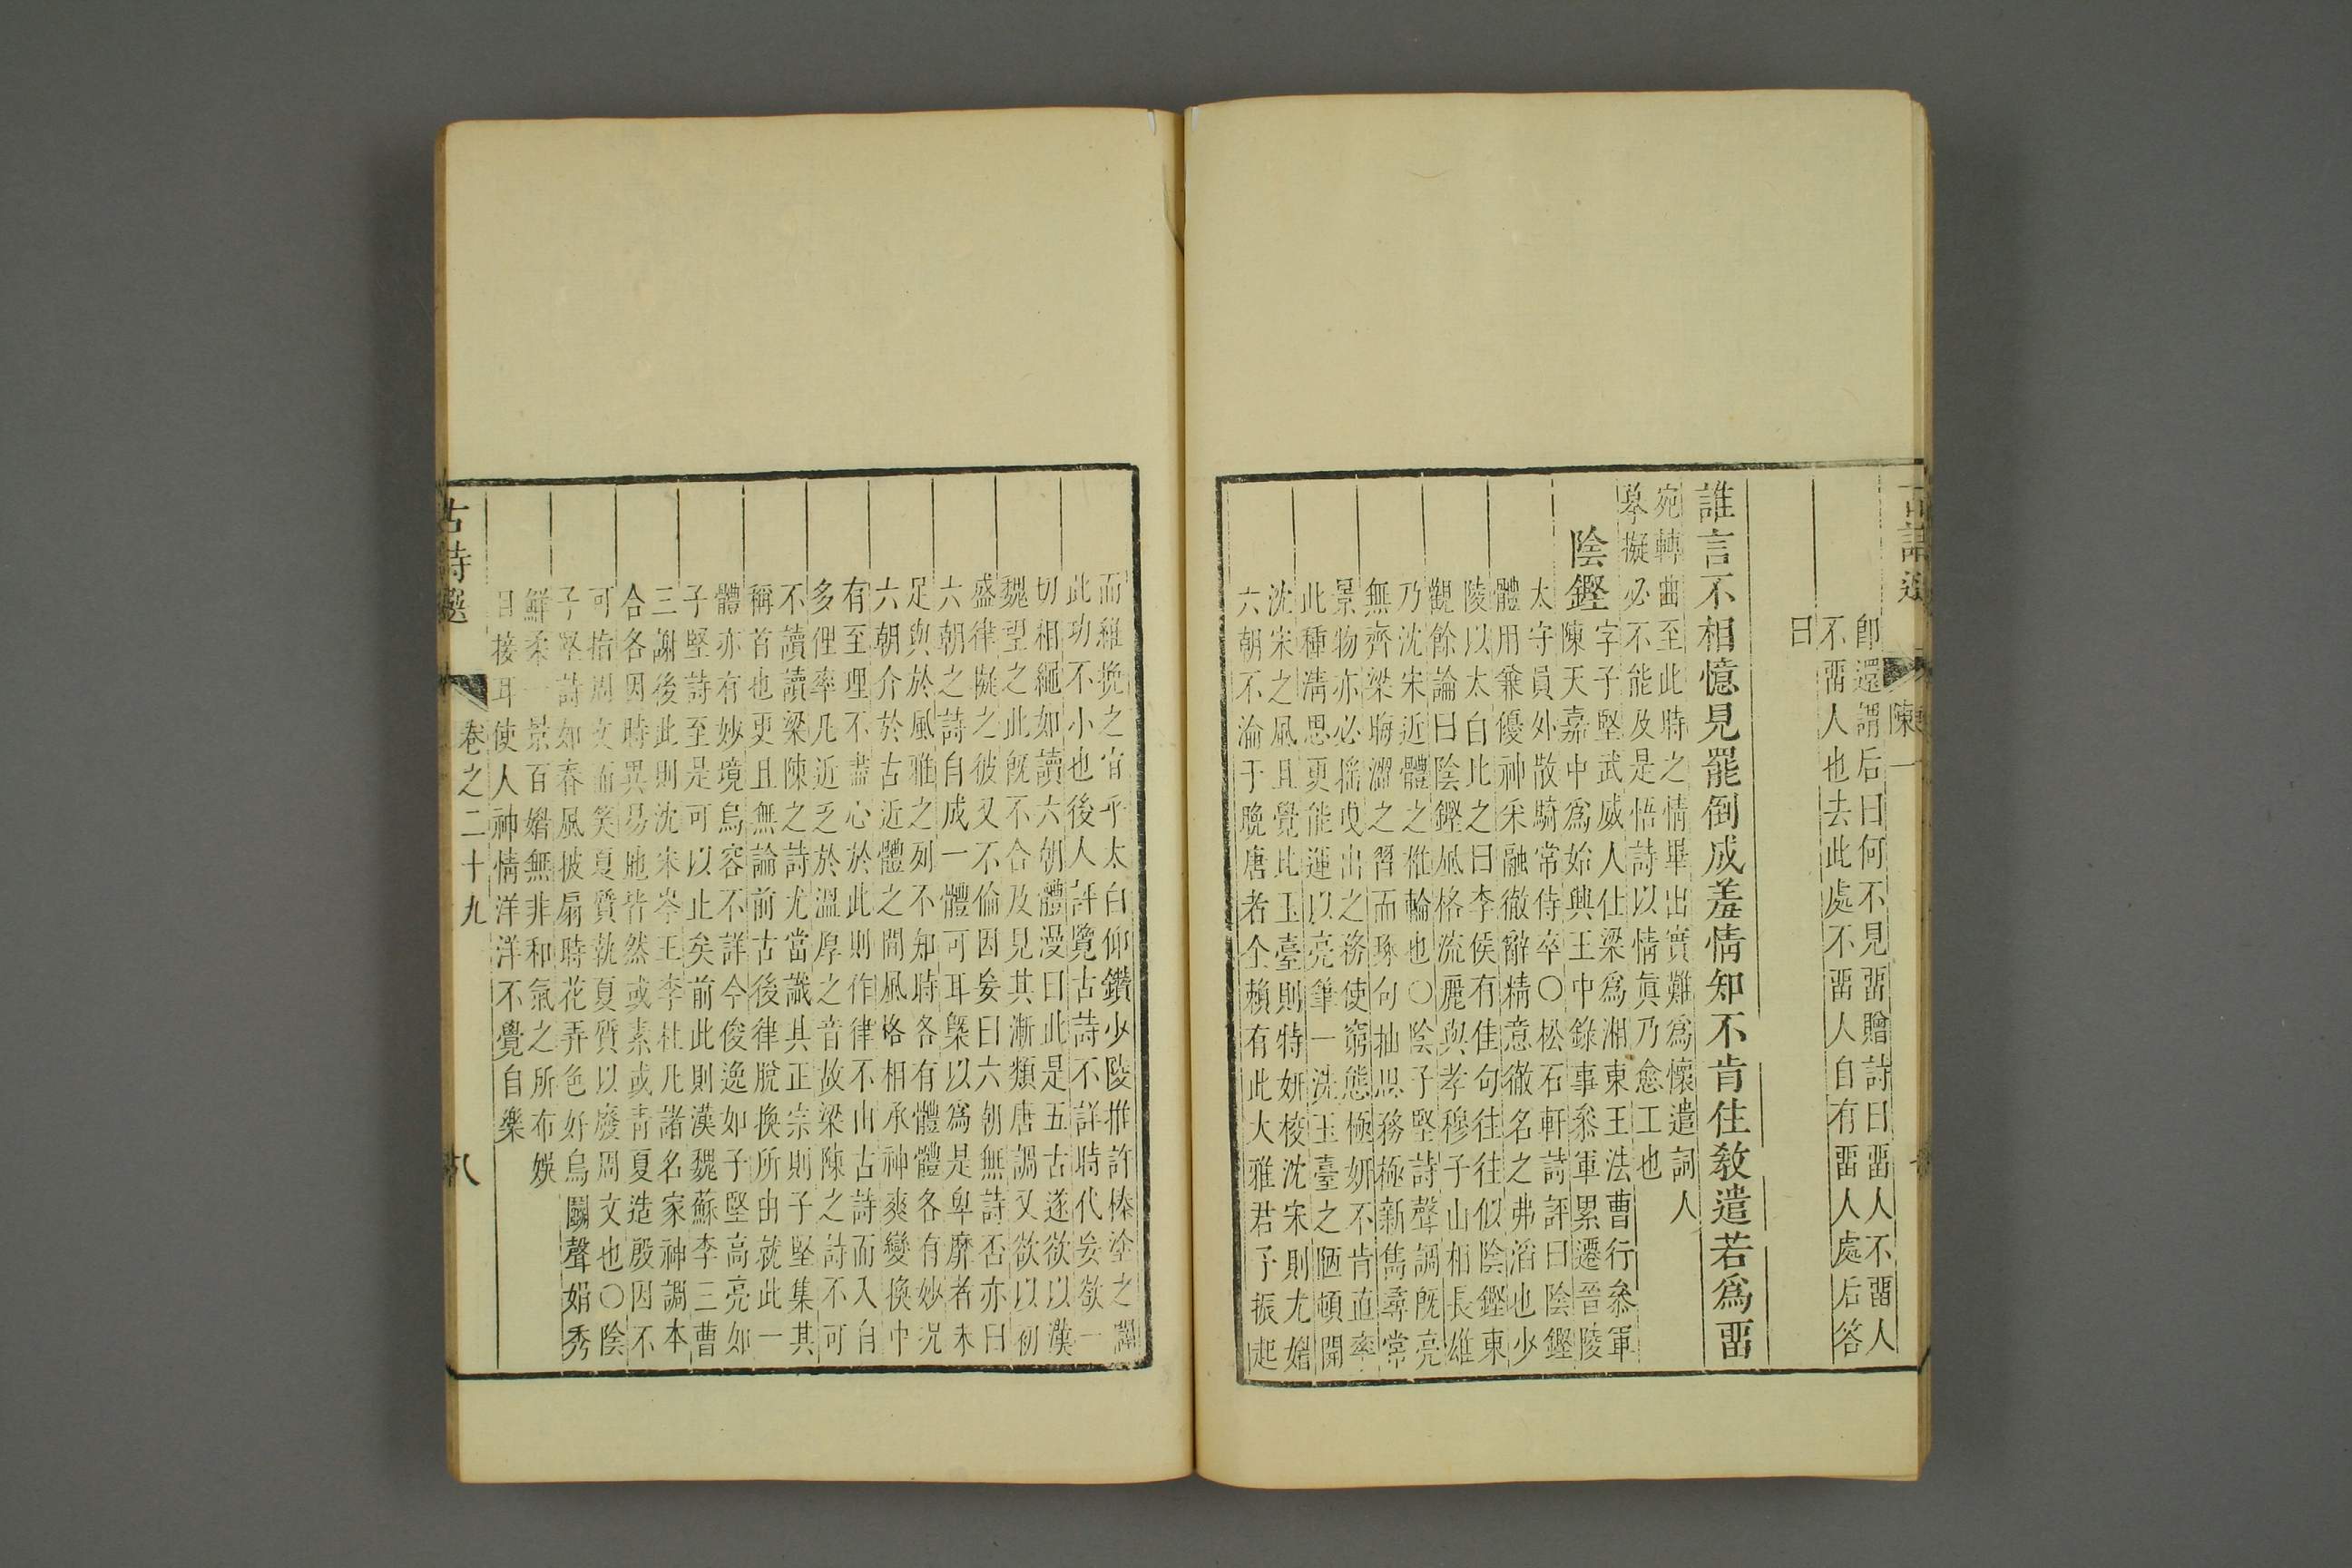 陳一
卽還謂后曰何不見畱贈詩曰畱人不畱人
不畱人也去此處不畱人自有畱人處后答
曰
誰言不相憶見罷倒成羞情知不肯住敎遣若爲畱
宛轉曲至此時之情畢出實難爲懷遣詞人
摹擬必不能及是悟詩以情眞乃愈工也
陰鏗
字子堅武威人仕梁爲湘東王法曹行叅軍
陳天嘉中爲始興王中錄事叅軍累遷晉陵
太守員外散騎常侍卒〇松石軒詩評曰陰鏗
體用兼優神采融徹辭精意徹名之弗滔也少
陵以太白比之曰李侯有佳句往往似陰鏗東
觀餘論曰陰鏗風格流麗與孝穆子山相長雄
乃沈宋近體之椎輪也〇陰子堅詩聲調旣亮
無齊梁晦澀之習而琢句抽思務極新雋尋常
景物亦必搖曳出之務使窮態極妍不肯直率
此種淸思更能運以亮筆一洗玉臺之陋頓開
沈宋之風且覺比玉臺則特妍校沈宋則尤媚
六朝不淪于晚唐者全賴有此大雅君子振起
而維挽之宜乎太白仰鑽少陵推許榛塗之闢
此功不小也後人評覽古詩不詳時代妄欲一
切相繩如讀六朝體漫曰此是五古遂欲以漢
魏望之此旣不合及見其漸類唐調又欲以初
盛律擬之彼又不倫因妄曰六朝無詩否亦曰
六朝之詩自成一體可耳槩以爲是卑靡者未
足與於風雅之列不知時各有體體各有妙況
六朝介於古近體之間風格相承神爽變換中
有至理不盡心於此則作律不由古詩而入自
多俚率凡近乏於溫厚之音故梁陳之詩不可
不讀讀梁陳之詩尤當識其正宗則子堅集其
稱首也更且無論前古後律脫換所由就此一
體亦有妙境烏容不詳今俊逸如子堅高亮如
子堅詩至是可以止矣前此則漢魏蘇李三曹
三謝後此則沈宋岑王李杜凡諸名家神調本
合各因時異易地皆然或素或靑夏造殷因不
可指周文而笑夏質執夏質以廢周文也〇陰
子堅詩如春風披扇時花弄色好鳥鬬聲娟秀
鮮柔一景百媚無非和氣之所布娛
目接耳使人神情洋洋不覺自樂
古詩選
卷之二十九
八